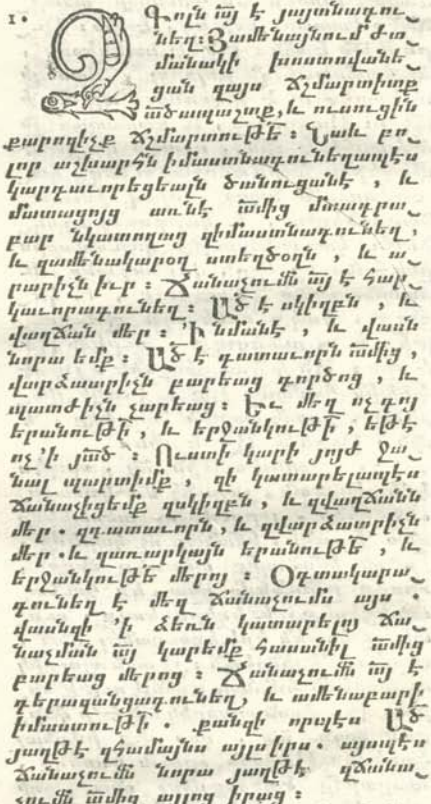 1. Գոլն ա՟յ է յայտնագու
նեղ: Յամենայնում ժա
մանակի խոստովանե
ցան զայս ճշմարտիտք
ա՟ծապաշտք, և ուսուցին
քարոզիչք ճշմարտութե՟ : Նաև բո
լոր աշխարհն իմաստնագունեղապէս
կարգաւորեցեալն ծանուցանէ , և
մատացոյց առնէ ա՟մից մտադրա
բար նկատողաց զիմաստնագունեղ,
և զամենակարօղ ստեղծօղն , և ա
րարիչն իւր : Ճանաչումն ա՟յ է հար
կաւորագունեղ : Ա՟ծ է սկիզբն , և
վաղճան մեր : Ի նմանէ , և վասն
նորա եմք : Ա՟ծ է դատաւորն ա՟մից ,
վարձատրիչն բարեաց գործոց , և
պատժիչն չարեաց : Եւ մեղ ոչ գոյ
երանութի՟ , և երջանկութի՟ , եթէ
ոչ ՚ի յա՟ծ : Ուստի կարի յոյժ ջա
նալ պարտիմք , զի կատարելապէս
ճանաչիցեմք զսկիզբն , և զվաղճանն
մեր . զդատաւորն , և զվարձատրիչն
մեր . և զառարկայն երանութե՟ , և
երջանկութե՟ մերոյ : Օգտակարա
գունեղ է մեզ ճանաչումս այս .
վասնզի ՚ի ձեռն կատարելոյ ճա
նաչման ա՟յ կարեմք հասանիլ ա՟մից
բարեաց մերոց : Ճանաչումն ա՟յ է
գերազանցագունեղ, և ամենաբարի
իմաստութի՟ . քանզի որպէս Ա՟ծ
յաղթէ զհամայնս այլ իրս . այսպէս
ճանաչումն նորա յաղթէ զճանա
չումն ա՟մից այլոց իրաց :